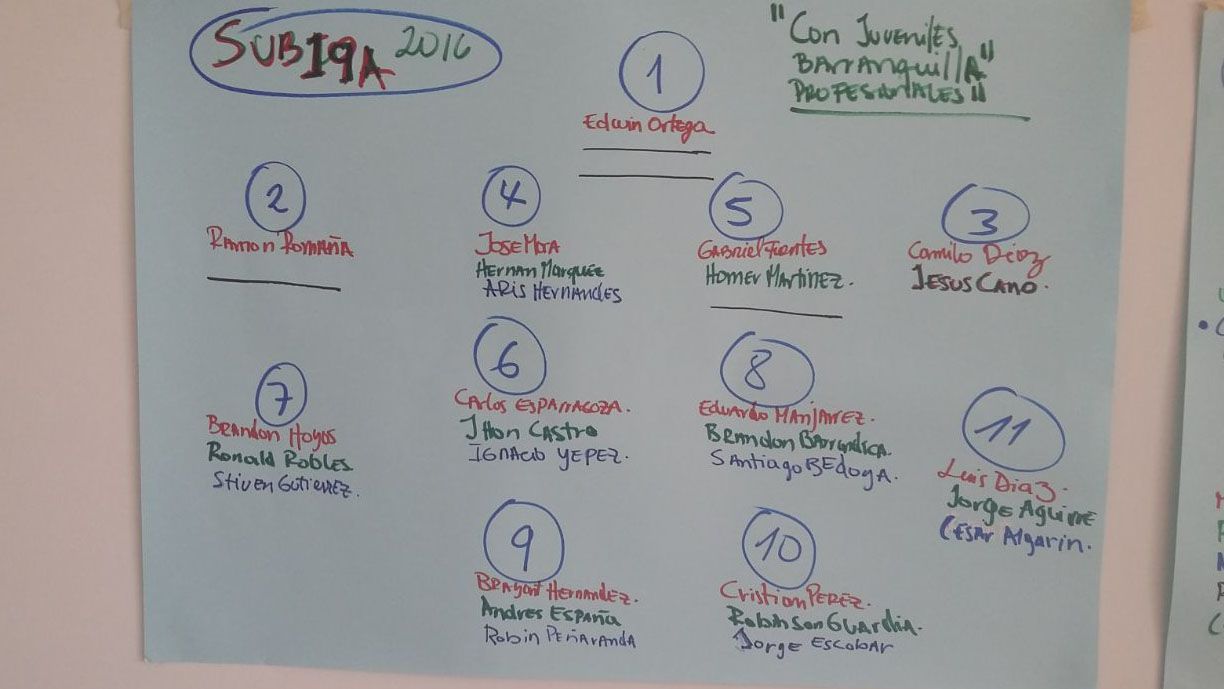 SUB19A 2016
"Con Juveniles
Barranquilla"
Profesionales"
1
Edwin Ortega
2
Ramon Romaña
4
Jose Mota
Hernan Marquée
Aris Hernandes
5
Gabriel Fuentes
Homer Martinez.
3
Camilo Diaz
Jesus Cano.
7
Brandon Hoyos
Ronald Robles
Stiven Gutierrez.
6
Carlos Esparragoza.
Jhon Castro
Ignacio Yepez.
8
Eduardo Manjarrez.
Brandon Barrandica.
Santiago Bedoya.
11
Luis Diaz.
Jorge Aguirre
Cesar Algarin.
9
Brayant Hernandez.
Andres España
Robin Peñaranda
10
Cristian Perez.
Robinson Guardia.
Jorge Escobar